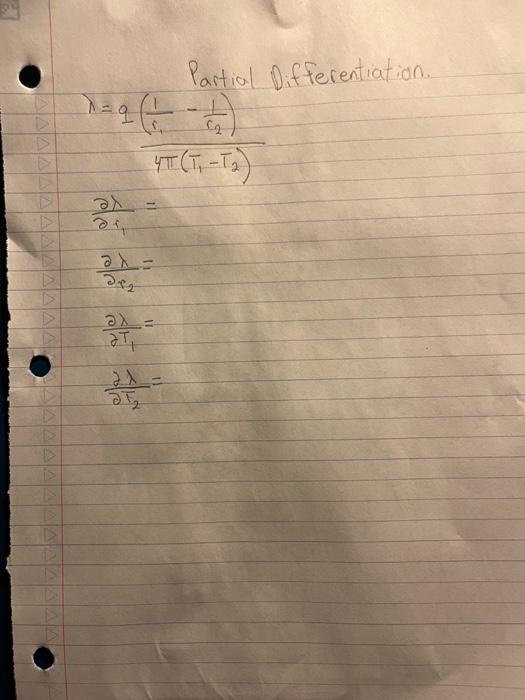 Partial Differentiation.
λ = q (1/r₁ - 1/r₂)
4π(T₁ - T₂)
∂λ/∂r₁ =
∂λ/∂r₂ =
∂λ/∂T₁ =
∂λ/∂T₂ =